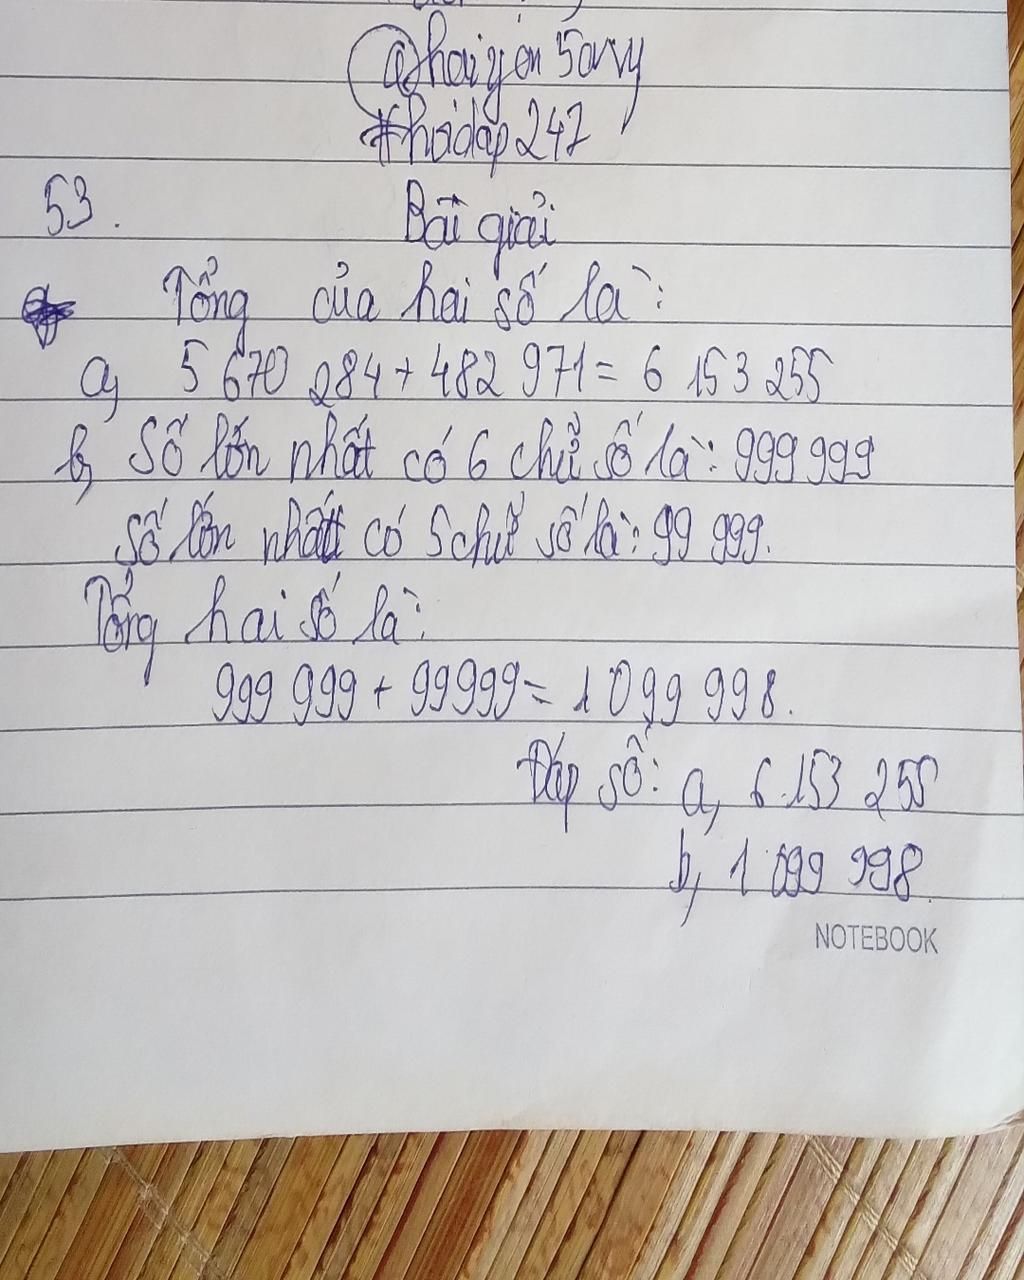 @haiyen5arvy
#hoidap247
53. Bài giải
Tổng của hai số là:
a, 5 670 284 + 482 971 = 6 153 255
b, Số lớn nhất có 6 chữ số là: 999 999
số lớn nhất có 5 chữ số là: 99 999.
Tổng hai số là:
999 999 + 99999 = 1 099 998.
Đáp số: a, 6 153 255
b, 1 099 998.
NOTEBOOK